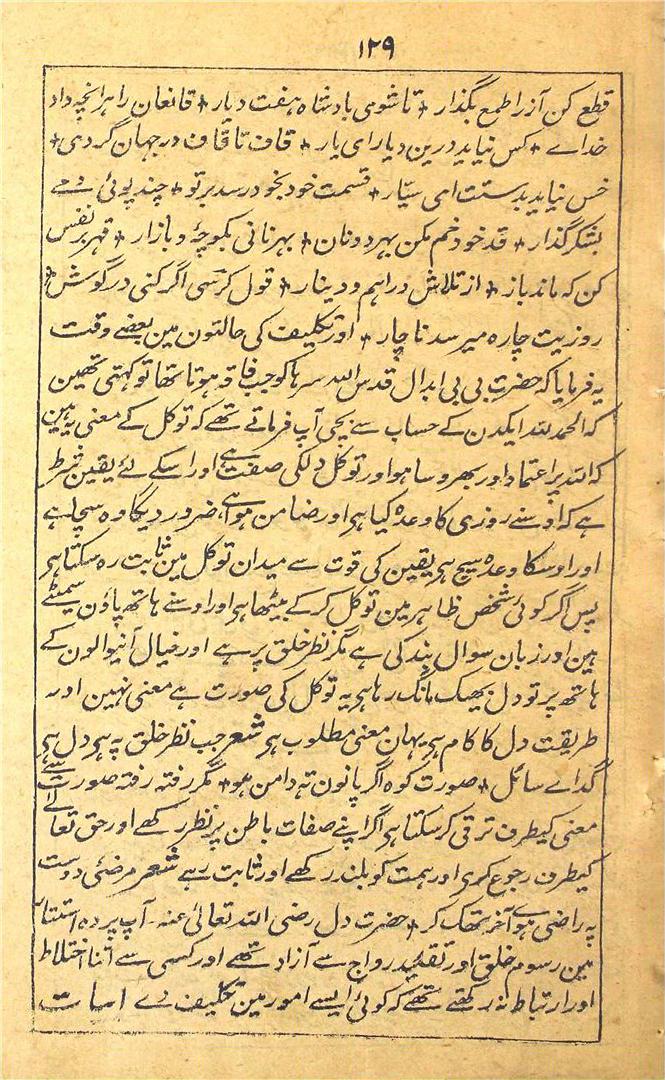 ۱۲۹
قطع کن آز را طمع بگذار + تا شوی بادشاہ ہفت دیار + قانعان را ہر انچہ داد
خداے + کس نیابد درین دیار ای یار + قاف تا قاف در جہان گردی +
خس نیابد بدستت ای سیّار + قسمت خود بخود رسد بر تو + چند پوئی دمے
بشکر گذار + قد خود خم مکن بہر دونان + بہر نانی بکوچۂ و بازار + قہر بر نفس
کن کہ ماند باز + از تلاش دراہم و دینار + قول کرسی اگر کنی در گوش +
روزیت چارہ میرسد ناچار + اور تکلیف کی حالتون مین بعضے وقت
یہ فرمایا کہ حضرت بی بی ابدال قدس اللہ سرہا کو جب فاقہ ہوتا تھا تو کہتی تھین
کہ الحمد للہ ایکدن کے حساب سے بچی آپ فرماتے تھے کہ توکل کے معنی یہ ہین
کہ اللہ پر اعتماد اور بھروسا ہو اور توکل دلکی صفت ہے اور اسکے لئے یقین شرط
ہے کہ اوسنے روزی کا وعدہ کیا ہی اور ضامن ہوا ہے، ضرور دیگا وہ سچا ہے
اور اوسکا وعدہ سچ ہی یقین کی قوت سے میدان توکل مین ثابت رہ سکتا ہی
پس اگر کوئی شخص ظاہر مین توکل کر کے بیٹھا ہی اور اوسنے ہاتھ پاؤن سمیٹے
ہین اور زبان سوال بند کی ہے مگر نظر خلق پر ہے اور خیال آنیوالون کے
ہاتھ پر تو دل بھیک مانگ رہا ہی یہ توکل کی صورت ہے معنی نہین اور
طریقت دل کا کام ہی یہان معنی مطلوب ہی شعر جب نظر خلق پہ ہی دل ہی
گداے سائل + صورت کوہ اگر پانون تہ دامن ہو + مگر رفتہ رفتہ صورت سے
معنی کیطرف ترقی کر سکتا ہی اگر اپنے صفات باطن پر نظر رکھے اور حق تعالے
کیطرف رجوع کری اور ہمت کو بلند رکھے اور ثابت رہے شعر مرضئی دوست
پہ راضی ہو آخر تھک کر + حضرت دل رضی اللہ تعالیٰ عنہ۔ آپ پردہ استتار
مین رسوم خلق اور تقلید رواج سے آزاد تھے اور کسی سے اتنا اختلاط
اور ارتباط نہ رکھتے تھے کہ کوئی ایسے امور مین تکلیف دے ابیات